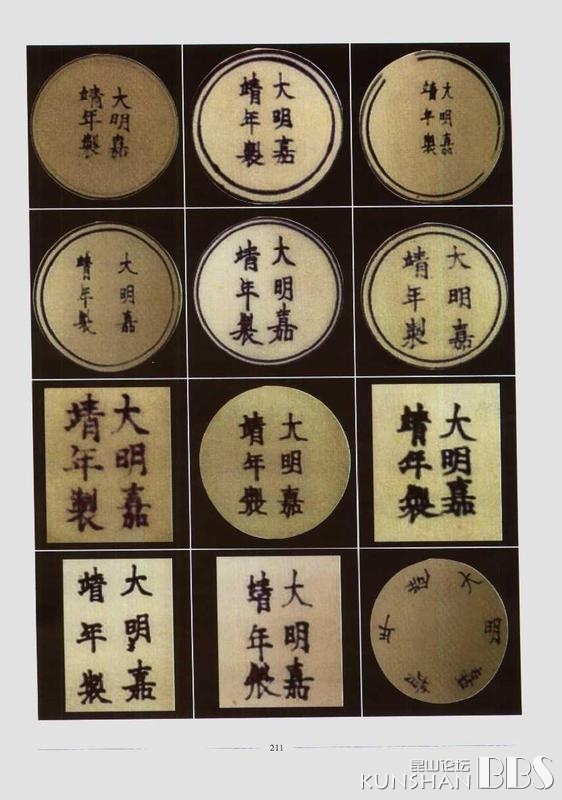 大明嘉
靖年製
大明嘉
靖年製
大明嘉
靖年製
大明嘉
靖年製
大明嘉
靖年製
大明嘉
靖年製
大明嘉
靖年製
大明嘉
靖年製
大明嘉
靖年製
大明嘉
靖年製
大明嘉
靖年製
大明嘉靖年造
211
昆山论坛
KUNSHAN BBS